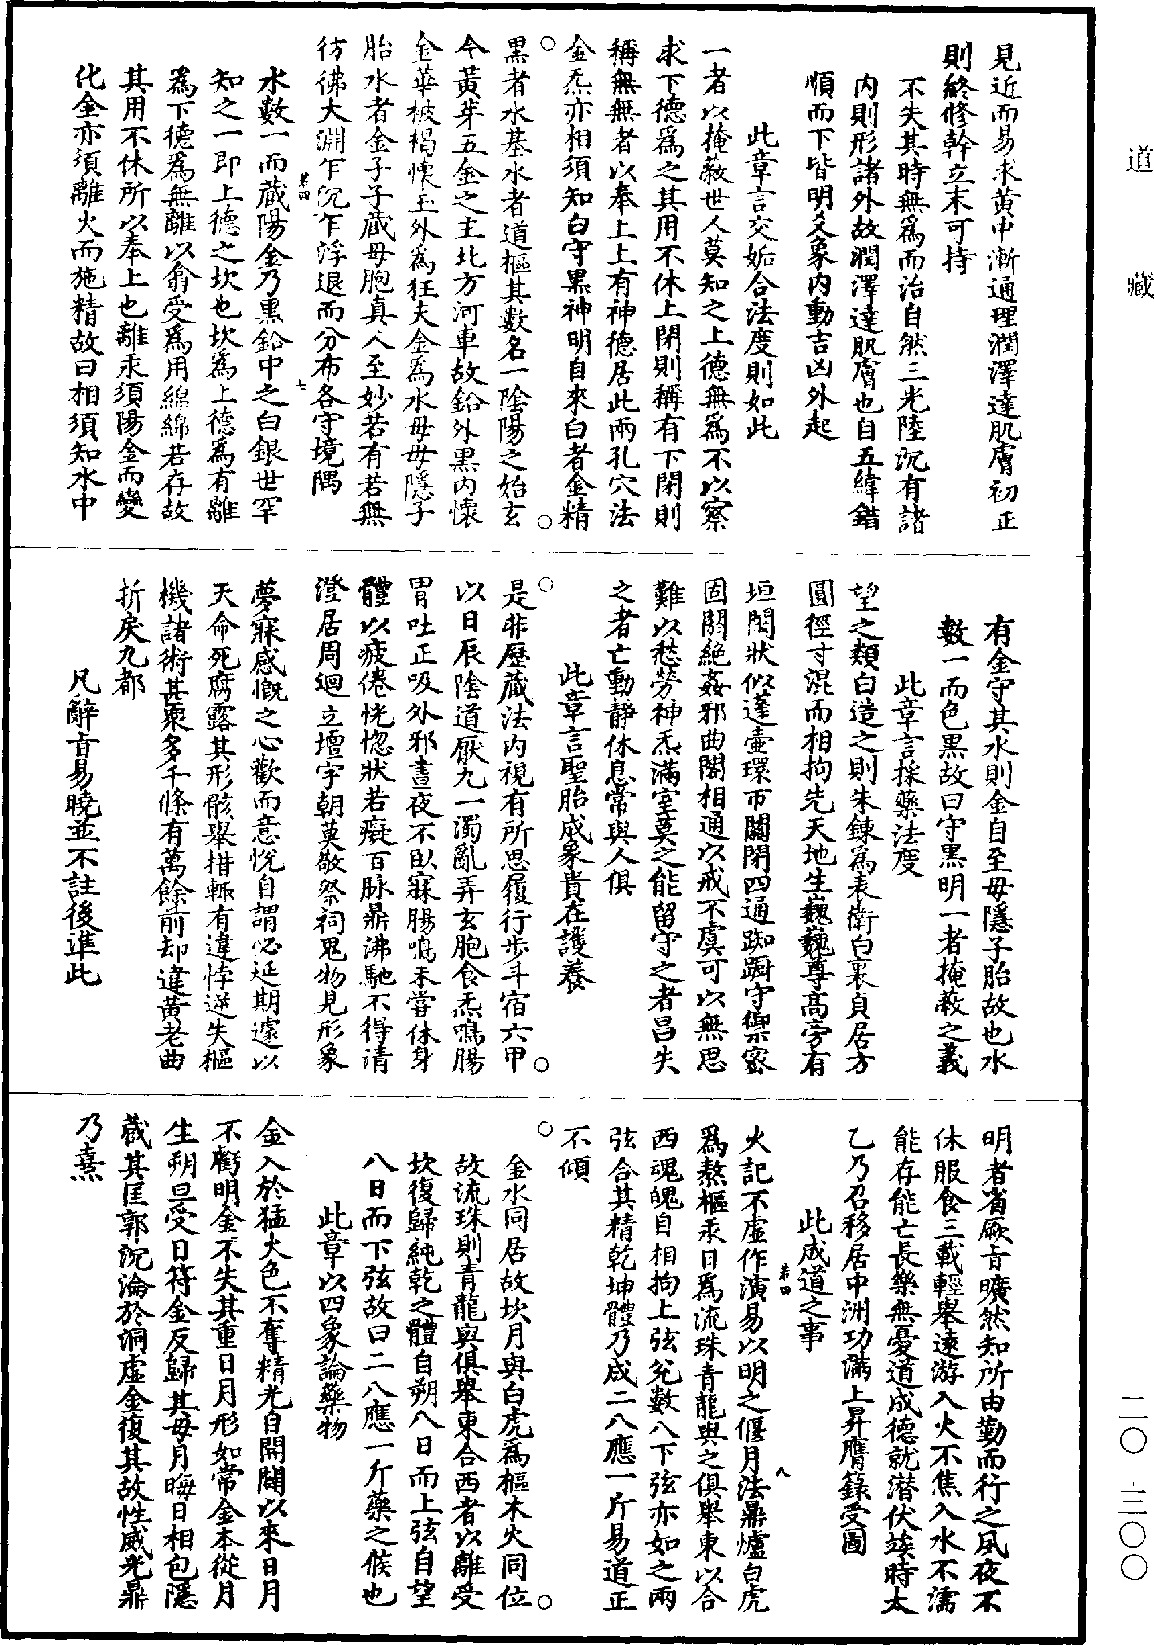 道藏
見近而易求黃中漸通理潤澤達肌膚初正
則終修幹立末可持
不失其時無為而治自然三光陸沉有諸
內則形諸外故潤澤達肌膚也自五緯錯
順而下皆明爻象內動吉凶外起
此章言交姤合法度則如此
一者以掩蔽世人莫知之上德無為不以察
求下德為之其用不休上閉則稱有下閉則
稱無無者以奉上上有神德居此兩孔穴法
金炁亦相須知白守黑神明自來白者金精
○
黑者水基水者道樞其數名一陰陽之始玄
○
今黃芽五金之主北方河車故鉛外黑內懷
金華被褐懷玉外為狂夫金為水母母隱子
胎水者金子子藏母胞真人至妙若有若無
彷彿大淵乍沉乍浮退而分布各守境隅
若四
七
水數一而藏陽金乃黑鉛中之白銀世罕
知之一即上德之坎也坎為上德為有離
為下德為無離以翕受為用綿綿若存故
其用不休所以奉上也離汞須陽金而變
化金亦須離火而施精故曰相須知水中
有金守其水則金自至母隱子胎故也水
數一而色黑故曰守黑明一者掩蔽之義
此章言採藥法度
望之類白造之則朱鍊為表衛白裏貞居方
圓徑寸混而相拘先天地生巍巍尊高旁有
垣闕狀似蓬壺環帀關閉四通踟躕守禦密
固閼絕姦邪曲閣相通以戒不虞可以無思
難以愁勞神炁滿室莫之能留守之者昌失
之者亡動靜休息常與人俱
此章言聖胎成象貴在護養
○
是非歷藏法內視有所思履行步斗宿六甲
○
以日辰陰道厭九一濁亂弄玄胞食炁鳴腸
胃吐正吸外邪晝夜不臥寐腸鳴未嘗休身
體以疲倦恍惚狀若癡百脉鼎沸馳不得清
澄居周迴立壇宇朝莫敬祭祠鬼物見形象
夢寐感慨之心歡而意悅自謂必延期遽以
天命死腐露其形骸舉措輒有違悖逆失樞
機諸術甚衆多千條有萬餘前却違黃老曲
折戾九都
凡辭旨易曉並不註後準此
明者省厥旨曠然知所由勤而行之夙夜不
休服食三載輕舉遠游入火不焦入水不濡
能存能亡長樂無憂道成德就潛伏竢時太
乙乃召移居中洲功滿上昇膺籙受圖
此成道之事
若四
八
火記不虛作演易以明之偃月法鼎爐白虎
為熬樞汞日為流珠青龍與之俱舉東以合
西魂魄自相拘上弦兌數八下弦亦如之兩
弦合其精乾坤體乃成二八應一斤易道正
不傾
○
金水同居故坎月與白虎為樞木火同位
○
故流珠則青龍與俱舉東合西者以離受
坎復歸純乾之體自朔八日而上弦自望
八日而下弦故曰二八應一斤藥之候也
此章以四象論藥物
金入於猛火色不奪精光自開闢以來日月
不虧明金不失其重日月形如常金本從月
生朔旦受日符金反歸其母月晦日相包隱
藏其匡郭沉淪於洞虛金復其故性威光鼎
乃熹
二〇·三〇〇